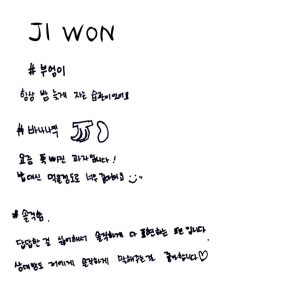 JI WON
# 부엉이
항상 밤 늦게 자는 습관이있어요
# 바나나찍
요즘 푹 빠진 과자입니다!
밥대신 먹을정도로 너무 좋아해요
# 솔직함.
답답한걸 싫어해서 솔직하게 다 표현하는 편입니다.
상대방도 저에게 솔직하게 말해주는걸 좋아합니다♡